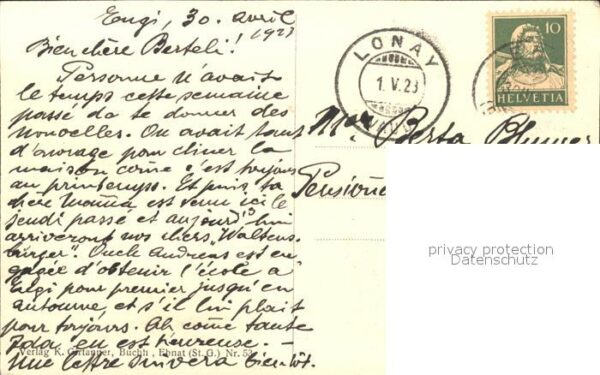 Engi, 30. avril
1923
Bien chère Berteli!
Personne n'avait
le temps cette semaine
passé da te donner des
nouvelles. On avait tant
d'ouvrage pour cliner la
maison come c'est toujours
au printemps. Et puis ta
chère mama est venu ici le
jeudi passé et aujourd'hui
arriveront nos chers "Waltens-
burger". Oncle Andreas est en-
gagée d'obtenir l'école a
Engi pour premier jusqu'en
automne, et s'il lui plait
pour toujours. Ah come tante
Ida en est heureuse. –
Une lettre suivera bientôt.
Verlag K. Girtanner, Buchh., Ebnat (St. G.) Nr. 53
LONAY
1.V.23
10
HELVETIA
Berta Blumer
Pensioné
privacy protection
Datenschutz